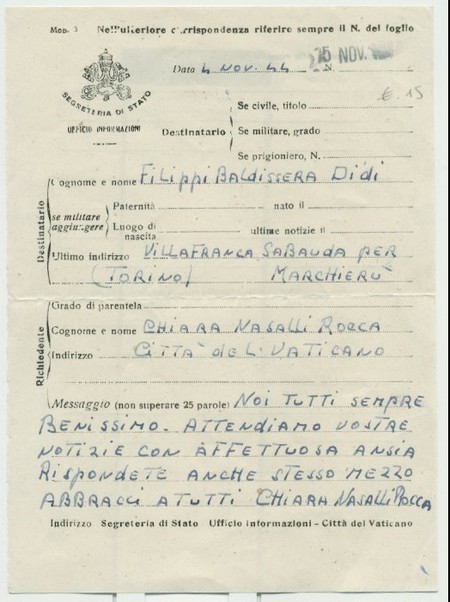 Mod. 3 Nell'ulteriore corrispondenza riferire sempre il N. del foglio
Data 4 NOV. 44 N.
25 NOV.
€. 15
SEGRETERIA DI STATO
UFFICIO INFORMAZIONI
Destinatario
Se civile, titolo
Se militare, grado
Se prigioniero, N.
Destinatario
Cognome e nome FILIPPI BALDISSERA DIDI
se militare aggiungere
Paternità nato il
Luogo di nascita ultime notizie il
Ultimo indirizzo VILLAFRANCA SABAUDA PER
(TORINO) MARCHIERÙ
Richiedente
Grado di parentela
Cognome e nome CHIARA NASALLI ROCCA
Indirizzo CITTÀ DEL VATICANO
Messaggio (non superare 25 parole) NOI TUTTI SEMPRE
BENISSIMO. ATTENDIAMO VOSTRE
NOTIZIE CON AFFETTUOSA ANSIA
RISPONDETE ANCHE STESSO MEZZO
ABBRACCI A TUTTI CHIARA NASALLI ROCCA
Indirizzo Segreteria di Stato Ufficio Informazioni - Città del Vaticano